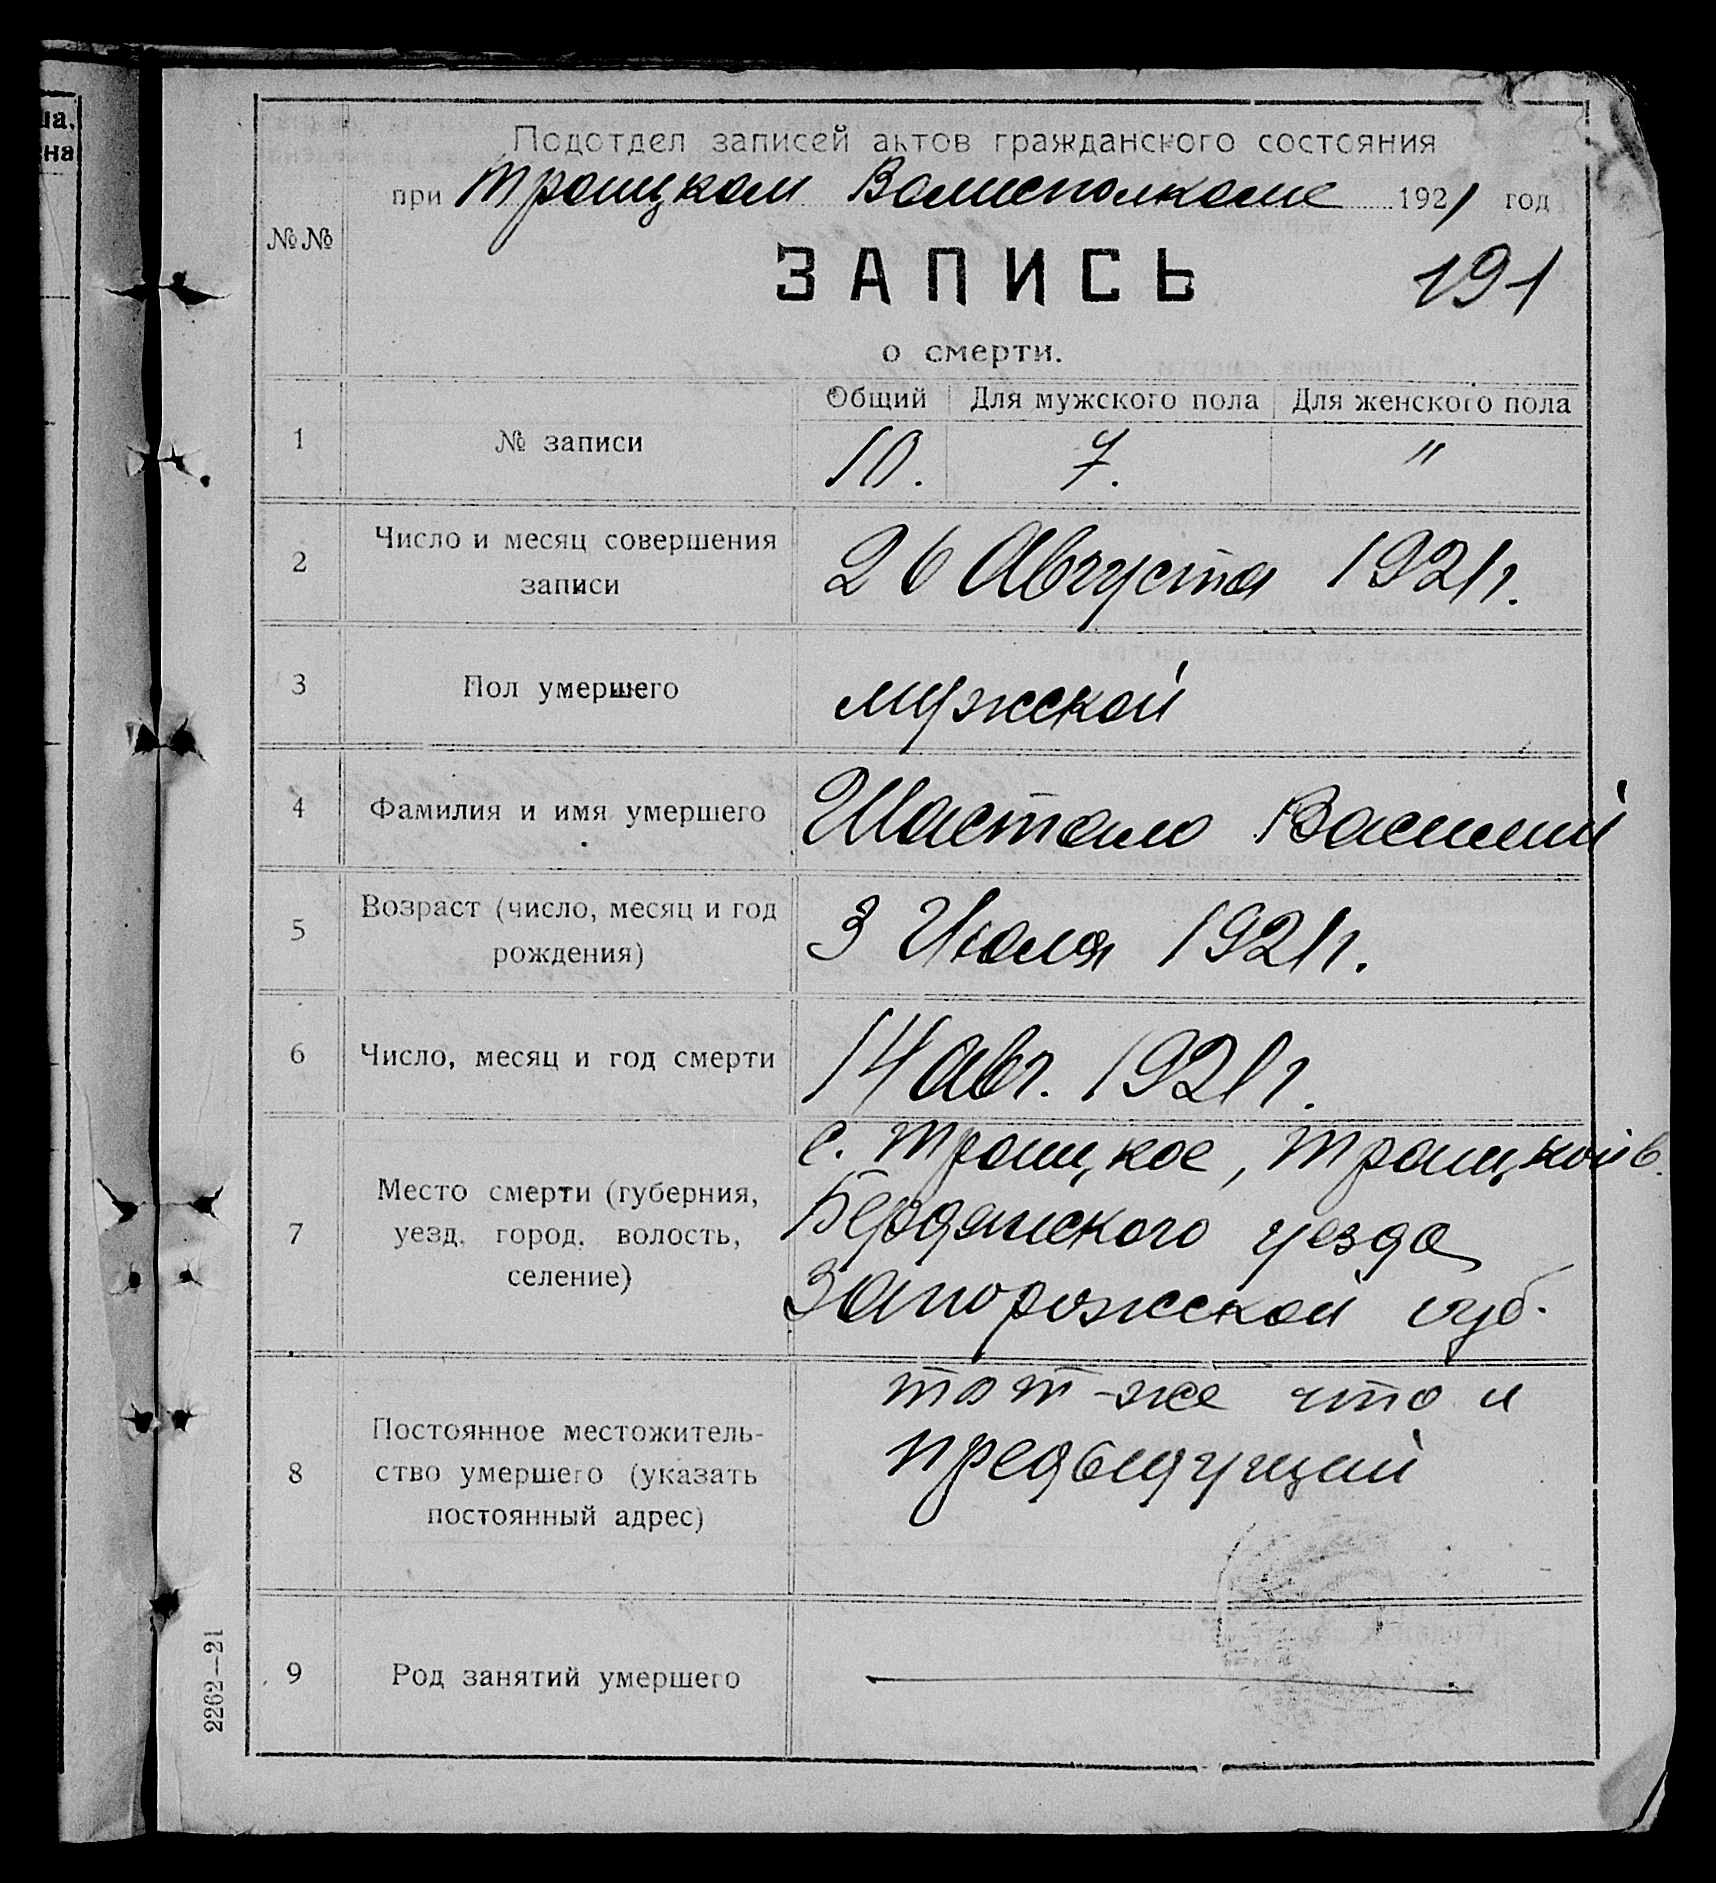 ца,
на
Подотдел записей актов гражданского состояния
при Троицком Волисполкоме 1921 год
№№
ЗАПИСЬ
191
о смерти.
Общий Для мужского пола Для женского пола
1 № записи 10. 7. "
2 Число и месяц совершения
записи
26 Августа 1921 г.
3 Пол умершего мужской
4 Фамилия и имя умершего Шастало Василий
5 Возраст (число, месяц и год
рождения)
3 Июля 1921 г.
6 Число, месяц и год смерти 14 авг. 1921 г.
7 Место смерти (губерния,
уезд, город, волость,
селение)
с. Троицкое, Троицкой в.
Бердянского уезда
Запорожской губ.
8 Постоянное местожитель-
ство умершего (указать
постоянный адрес)
тот-же что и
предыдущий
9 Род занятий умершего
2262—21